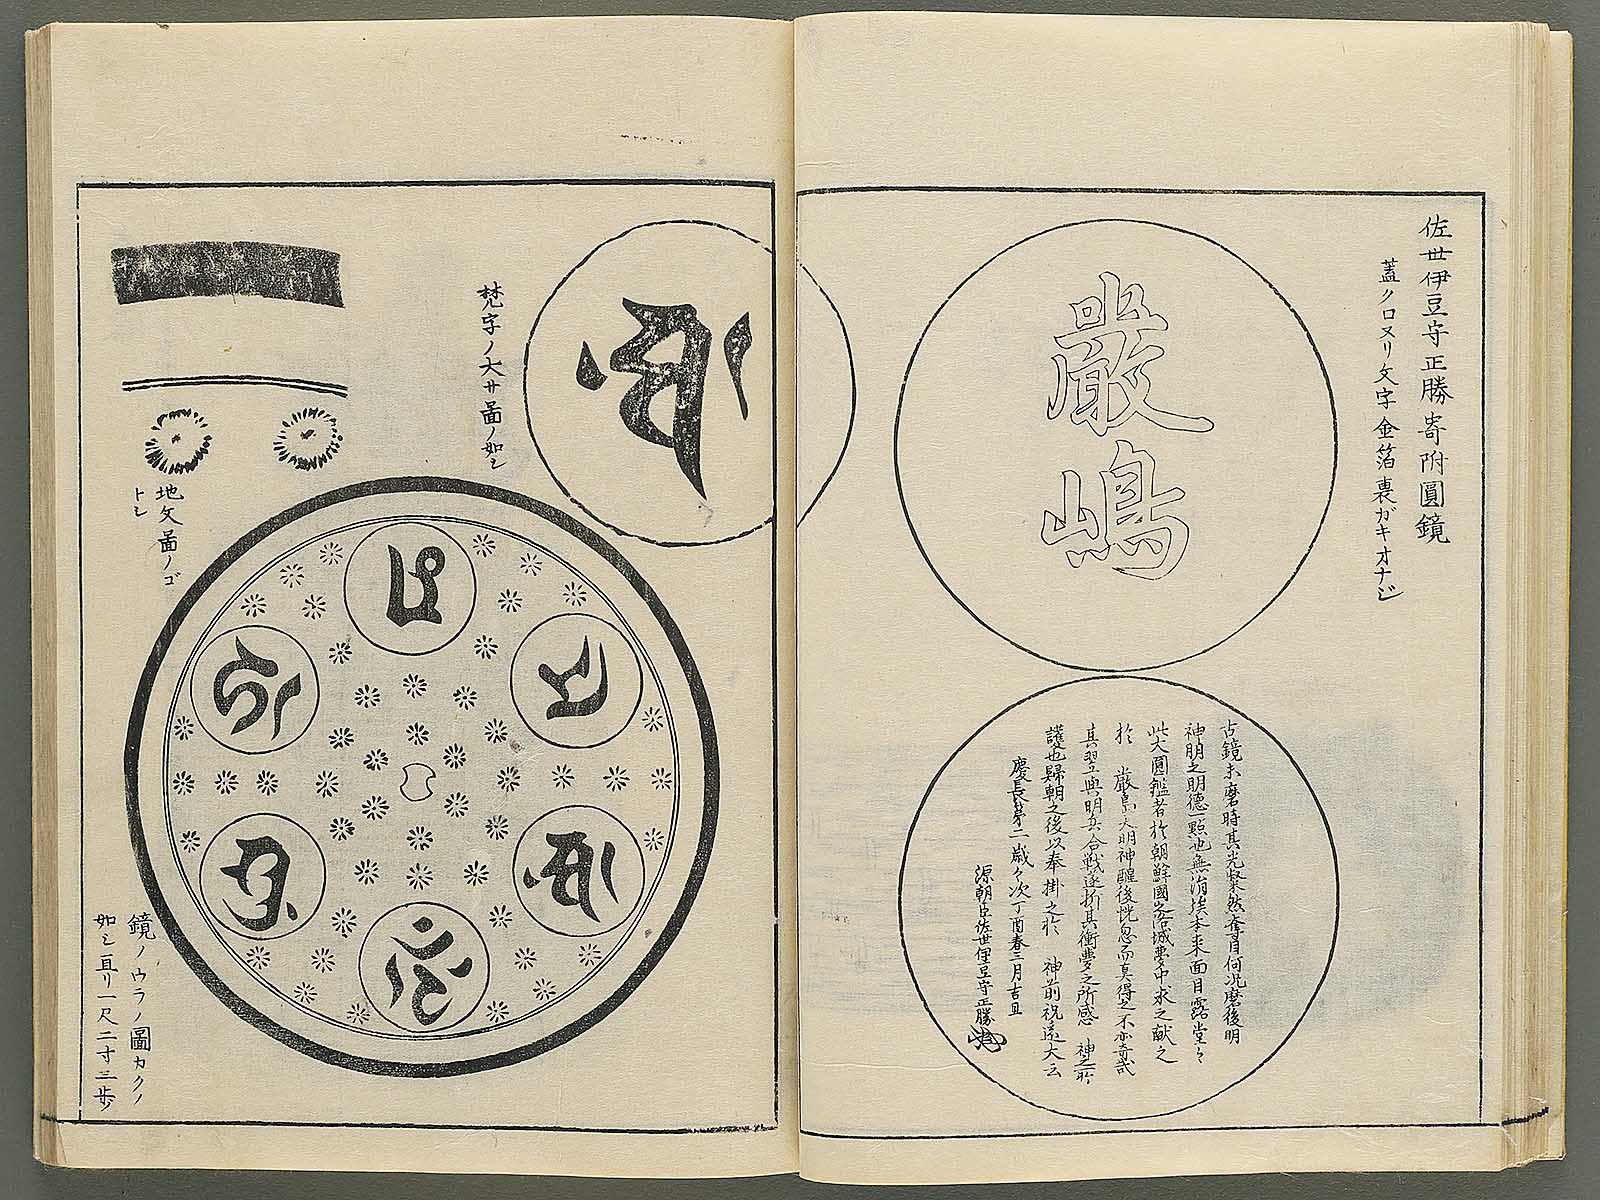 佐世伊豆守正勝寄附圓鏡
蓋クロヌリ文字金箔裏ガキオナジ
嚴
嶋
古鏡未磨時其光粲然奪目何况磨後明
神朋之明德一點也無涓埃本来面目露堂々
此大圓鑑者於朝鮮國洛城夢中求之献之
於　嚴島大明神醒後恍忽而真得之不亦奇哉
其翌與明兵合戦遂折其衝夢之所感　神之所
護也歸朝之後以奉掛之於　神前祝遠大云
慶長第二歳々次丁酉春三月吉旦
源朝臣佐世伊豆守正勝
梵字ノ大サ圖ノ如シ
地文圖ノゴ
トシ
鏡ノウラノ圖カクノ
如シ亘リ一尺二寸三歩